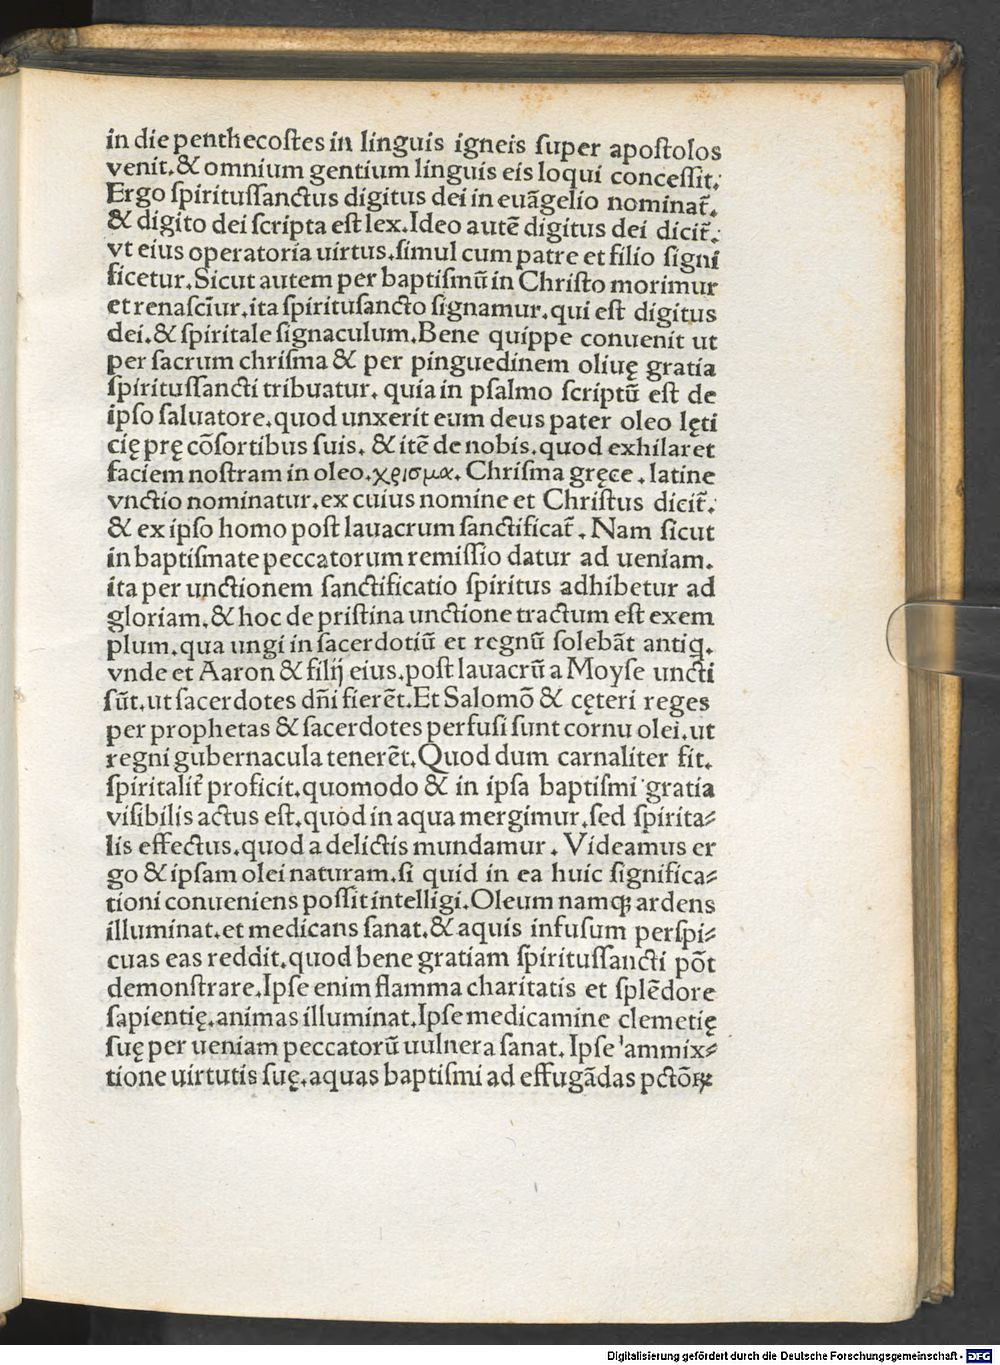 in die penthecoſtes in linguis igneis ſuper apoſtolos
venit.& omnium gentium linguis eis loqui conceſſit.
Ergo ſpirituſſanctus digitus dei in euãgelio nominat᷑.
& digito dei ſcripta eſt lex.Ideo autẽ digitus dei dicit᷑.
vt eius operatoria uirtus.ſimul cum patre et filio ſigni
ficetur.Sicut autem per baptiſmũ in Chriſto morimur
et renaſcĩur.ita ſpirituſancto ſignamur.qui eſt digitus
dei.& ſpiritale ſignaculum.Bene quippe conuenit ut
per ſacrum chriſma & per pinguedinem oliuę gratia
ſpirituſſancti tribuatur. quia in pſalmo ſcriptũ eſt de
ipſo ſaluatore.quod unxerit eum deus pater oleo lęti
cię prę cõſortibus ſuis. & itẽ de nobis.quod exhilaret
faciem noſtram in oleo.χρισμα. Chriſma gręce . latine
vnctio nominatur.ex cuius nomine et Chriſtus dicit᷑.
& ex ipſo homo poſt lauacrum ſanctificat᷑ . Nam ſicut
in baptiſmate peccatorum remiſſio datur ad ueniam.
ita per unctionem ſanctificatio ſpiritus adhibetur ad
gloriam.& hoc de priſtina unctione tractum eſt exem
plum.qua ungi in ſacerdotiũ et regnũ ſolebãt antiq.
vnde et Aaron & filij eius.poſt lauacrũ a Moyſe uncti
ſũt.ut ſacerdotes dñi fierẽt.Et Salomõ & cęteri reges
per prophetas & ſacerdotes perfuſi ſunt cornu olei.ut
regni gubernacula tenerẽt.Quod dum carnaliter fit.
ſpiritalit᷑ proficit.quomodo & in ipſa baptiſmi gratia
viſibilis actus eſt.quod in aqua mergimur.ſed ſpirita⸗
lis effectus.quod a delictis mundamur . Videamus er
go & ipſam olei naturam.ſi quid in ea huic ſignifica⸗
tioni conueniens poſſit intelligi.Oleum namqꝫ ardens
illuminat.et medicans ſanat.& aquis infuſum perſpi⸗
cuas eas reddit.quod bene gratiam ſpirituſſancti põt
demonſtrare.Ipſe enim flamma charitatis et ſplẽdore
ſapientię.animas illuminat.Ipſe medicamine clemetię
ſuę per ueniam peccatorũ uulnera ſanat. Ipſe ammix⸗
tione uirtutis ſuę.aquas baptiſmi ad effugãdas pctõꝝ
Digitalisierung gefördert durch die Deutsche Forschungsgemeinschaft - DFG